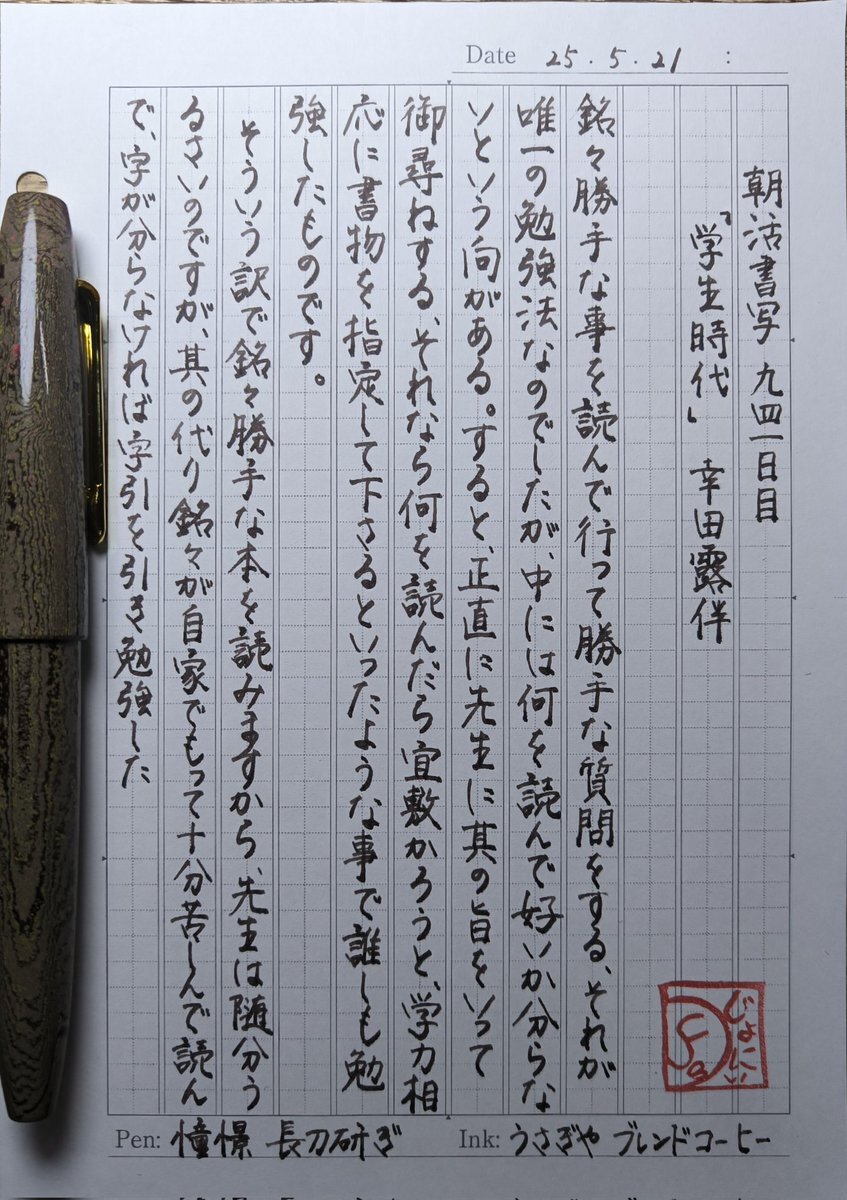 Date 25.5.21 :
朝活書写 九四一日目
「学生時代」 幸田露伴
銘々勝手な事を読んで行って勝手な質問をする、それが
唯一の勉強法なのでしたが、中には何を読んで好いか分らな
いという向がある。すると、正直に先生に其の旨をいって
御尋ねする、それなら何を読んだら宜敷かろうと、学力相
応に書物を指定して下さるといったような事で誰しも勉
強したものです。
そういう訳で銘々勝手な本を読みますから、先生は随分う
るさいのですが、其の代り銘々が自家でもって十分苦しんで読ん
で、字が分らなければ字引を引き勉強した
じょにい
Pen: 憧憬 長刀研ぎ
Ink: うさぎや ブレンドコーヒー